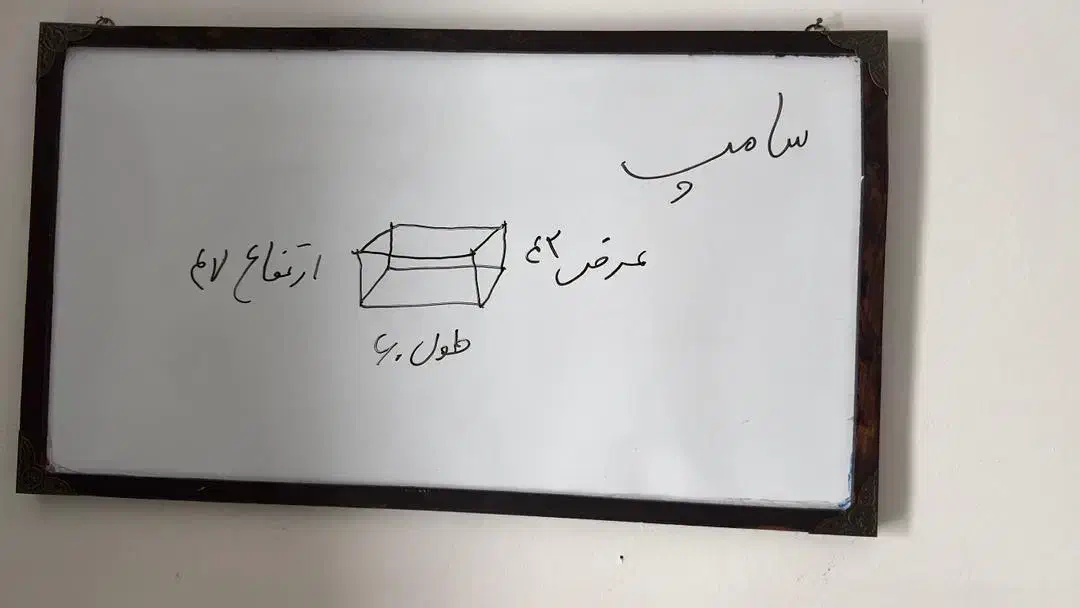 سامپ
عرض ۴۳
ارتفاع ۴۷
طول ۶۰